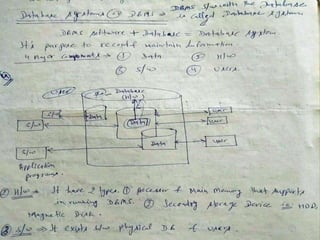 Database systems (or) DBMS → DBMS S/w with the Database
is called Database system
DBMS software + Database = Database system
It's purpose to record & maintain Information
4 major components → ① Data ② H/w
③ S/w ④ users.
Database
(H/w)
S/w
S/w
S/w
Data
Data
Data
user
user
user
Application
programs.
② H/w → It have 2 types. ① processor & Main memory that supports
in running DBMS. ② Secondary storage Device is HDD,
Magnetic Disk.
③ S/w → It exists b/w physical DB & users.